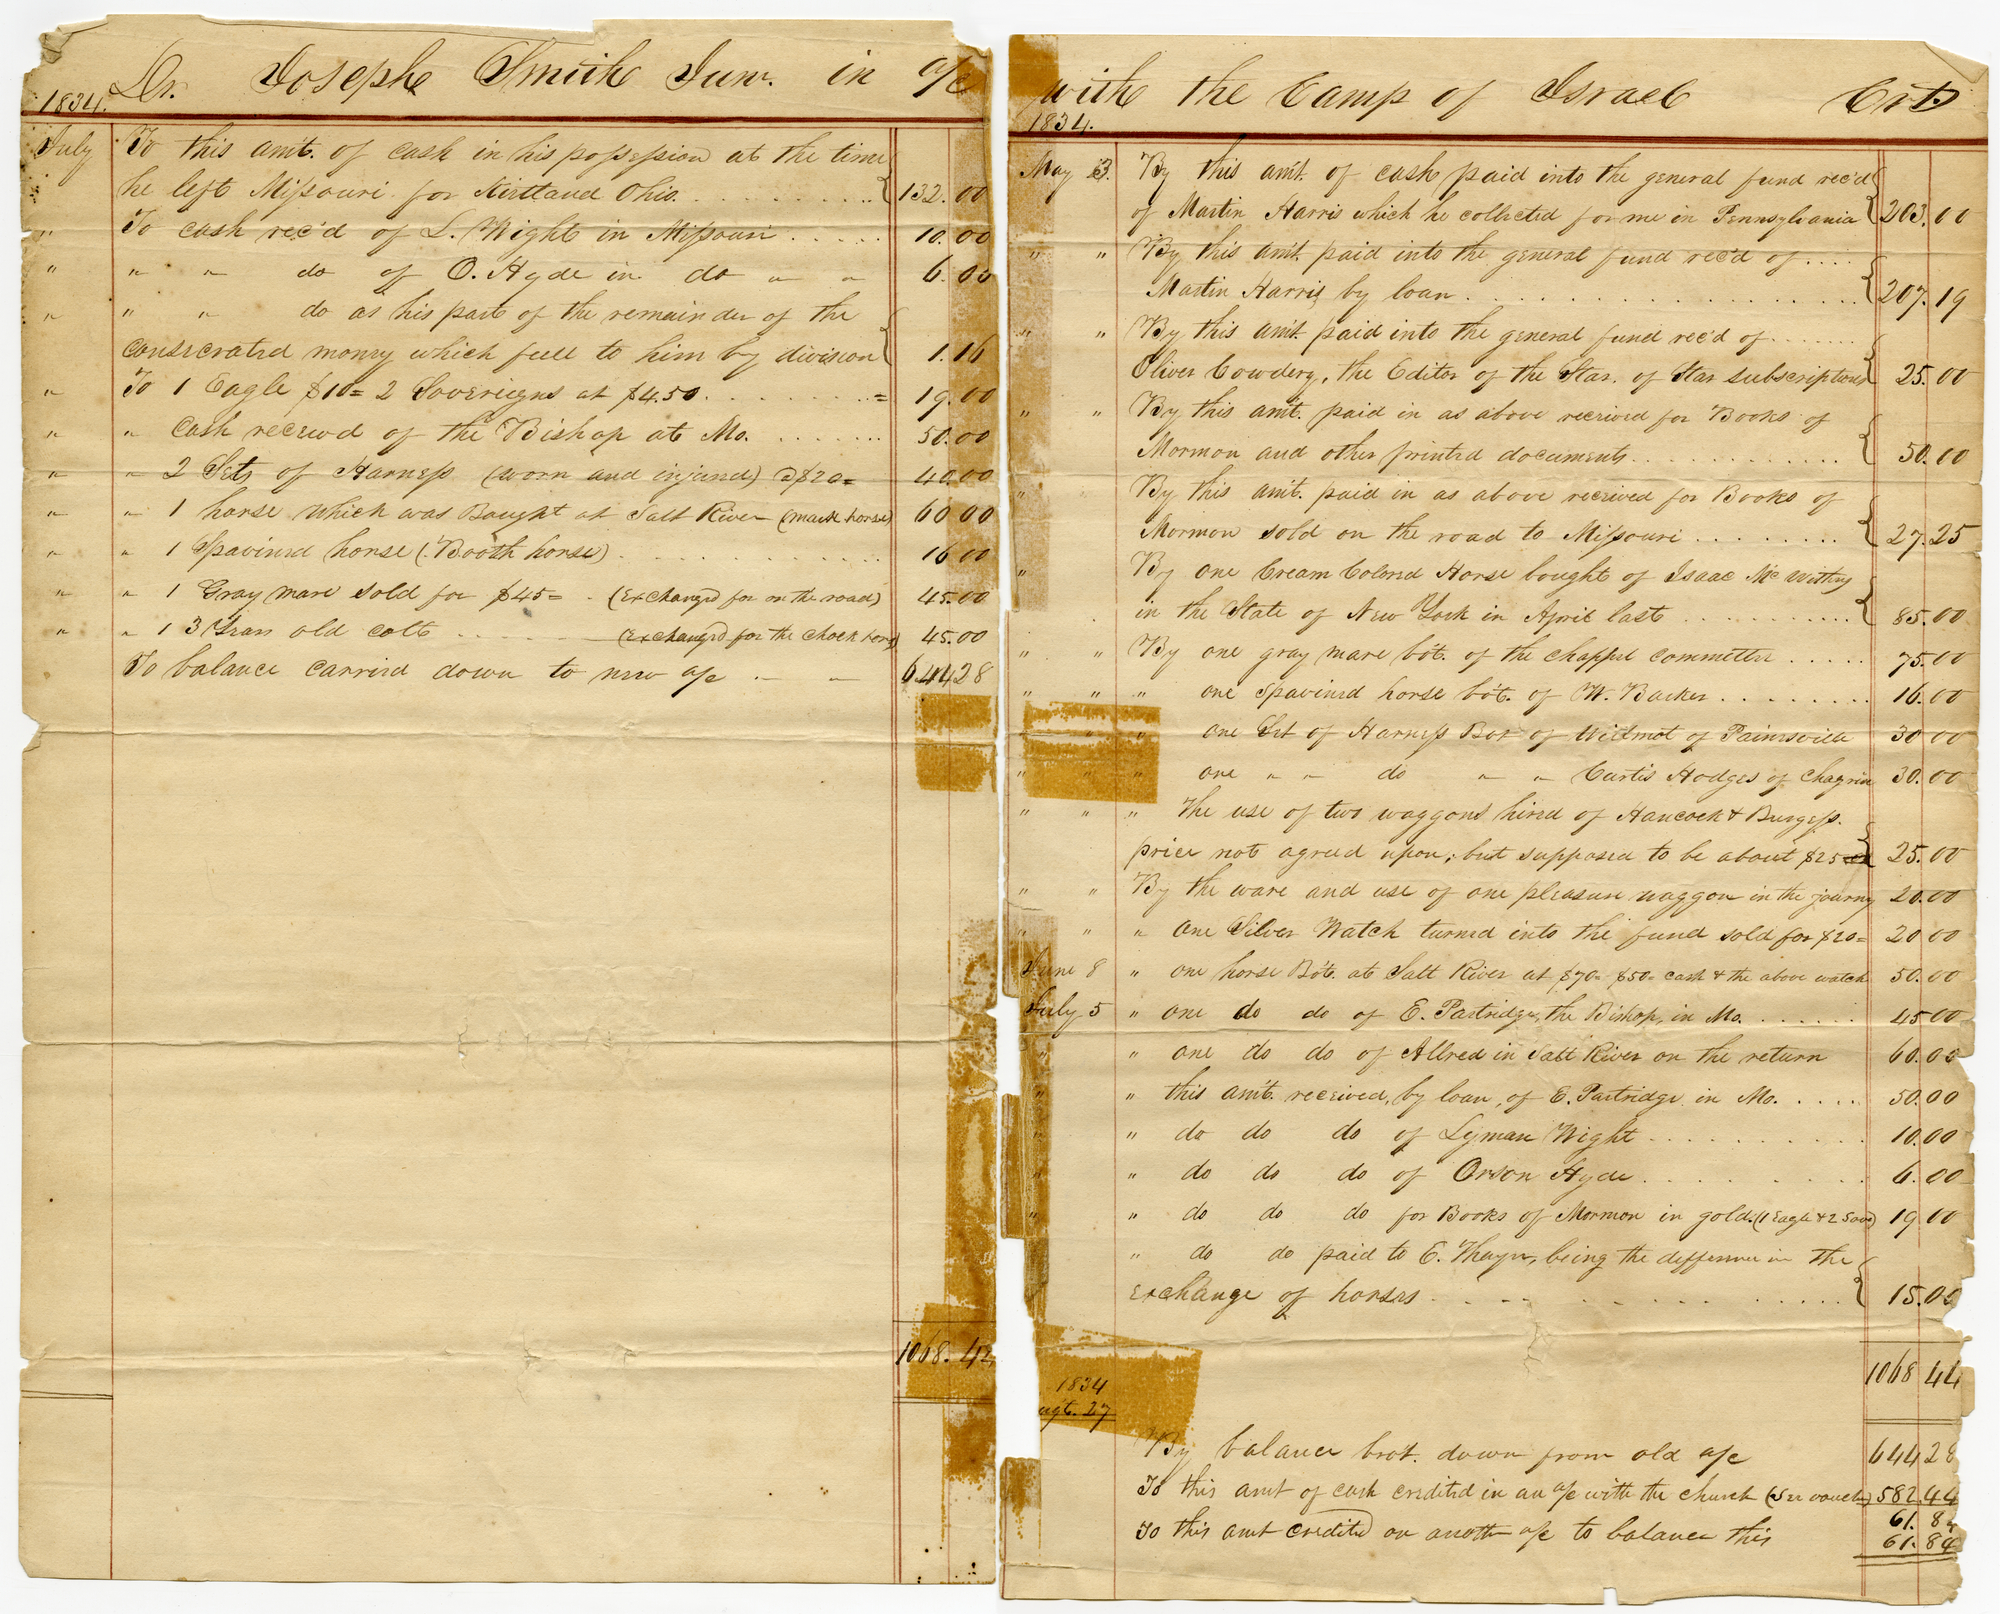 Dr. Joseph Smith Junr. in a/c
1834.
July To this amt. of cash in his possession at the time
he left Missouri for Kirtland Ohio. 132.00
" To cash rec'd of L. Wight in Missouri 10.00
" " " do of O. Hyde in do " " 6.00
" " " do as his part of the remainder of the
consecrated money which fell to him by division 1.16
" To 1 Eagle $10= 2 Sovereigns at $4.50 = 19.00
" " Cash received of the Bishop at Mo. 50.00
" " 2 Sets of Harness (worn and injured) @ $20= 40.00
" " 1 horse which was Bought at Salt River (mack horse) 60 00
" " 1 Spavined horse (Booth horse) 16 00
" " 1 Gray mare sold for $45= (Exchanged for on the road) 45.00
" " 1 3 Years old colt (Exchanged for the Chock horse) 45.00
To balance carried down to new a/c " " 644 28
1068.42
with the Camp of Israel Crt.
1834.
May 3. By this amt. of cash paid into the general fund rec'd
of Martin Harris which he collected for me in Pennsylvania 203.00
" " By this amt. paid into the general fund rec'd of
Martin Harris by loan 207.19
" " By this amt. paid into the general fund rec'd of
Oliver Cowdery, the Editor of the Star, of Star subscriptions 25.00
" " By this amt. paid in as above received for Books of
Mormon and other printed documents 50.00
" By this amt. paid in as above received for Books of
Mormon sold on the road to Missouri 27.25
" By one Cream Colored Horse bought of Isaac McWithy
in the State of New York in April last 85.00
" " By one gray mare bôt. of the chappel committee 75.00
" " " one spavined horse bôt. of W. Barker 16.00
" " " one Set of Harness Bôt of Wilmot of Painesville 30 00
" " " one " " do " " Curtis Hodges of Chagrin 30.00
" " " The use of two waggons hired of Hancock & Burgess.
price not agreed upon; but supposed to be about $25 25.00
" " By the ware and use of one pleasure waggon in the journey 20.00
" " " one Silver Watch turned into the fund sold for $20= 20 00
June 8 " one horse Bôt. at Salt River at $70= $50= cash & the above watch 50.00
July 5 " one do do of E. Partridge, the Bishop, in Mo. 45 00
" " one do do of Allred in Salt River on the return 60.00
" " this amt. received, by loan, of E. Partridge in Mo. 50.00
" " do do do of Lyman Wight 10.00
" " do do do of Orson Hyde 6.00
" " do do do for Books of Mormon in gold. (1 Eagle & 2 Sove) 19 00
" do do paid to E. Thayer, being the difference in the
exchange of horses 15.00
1068 44
1834
ugt. 27
By balance brot. down from old a/c 644 28
To this amt of cash credited in an a/c with the church (See voucher) 582,44
61. 84
To this amt credited on another a/c to balance this 61.84